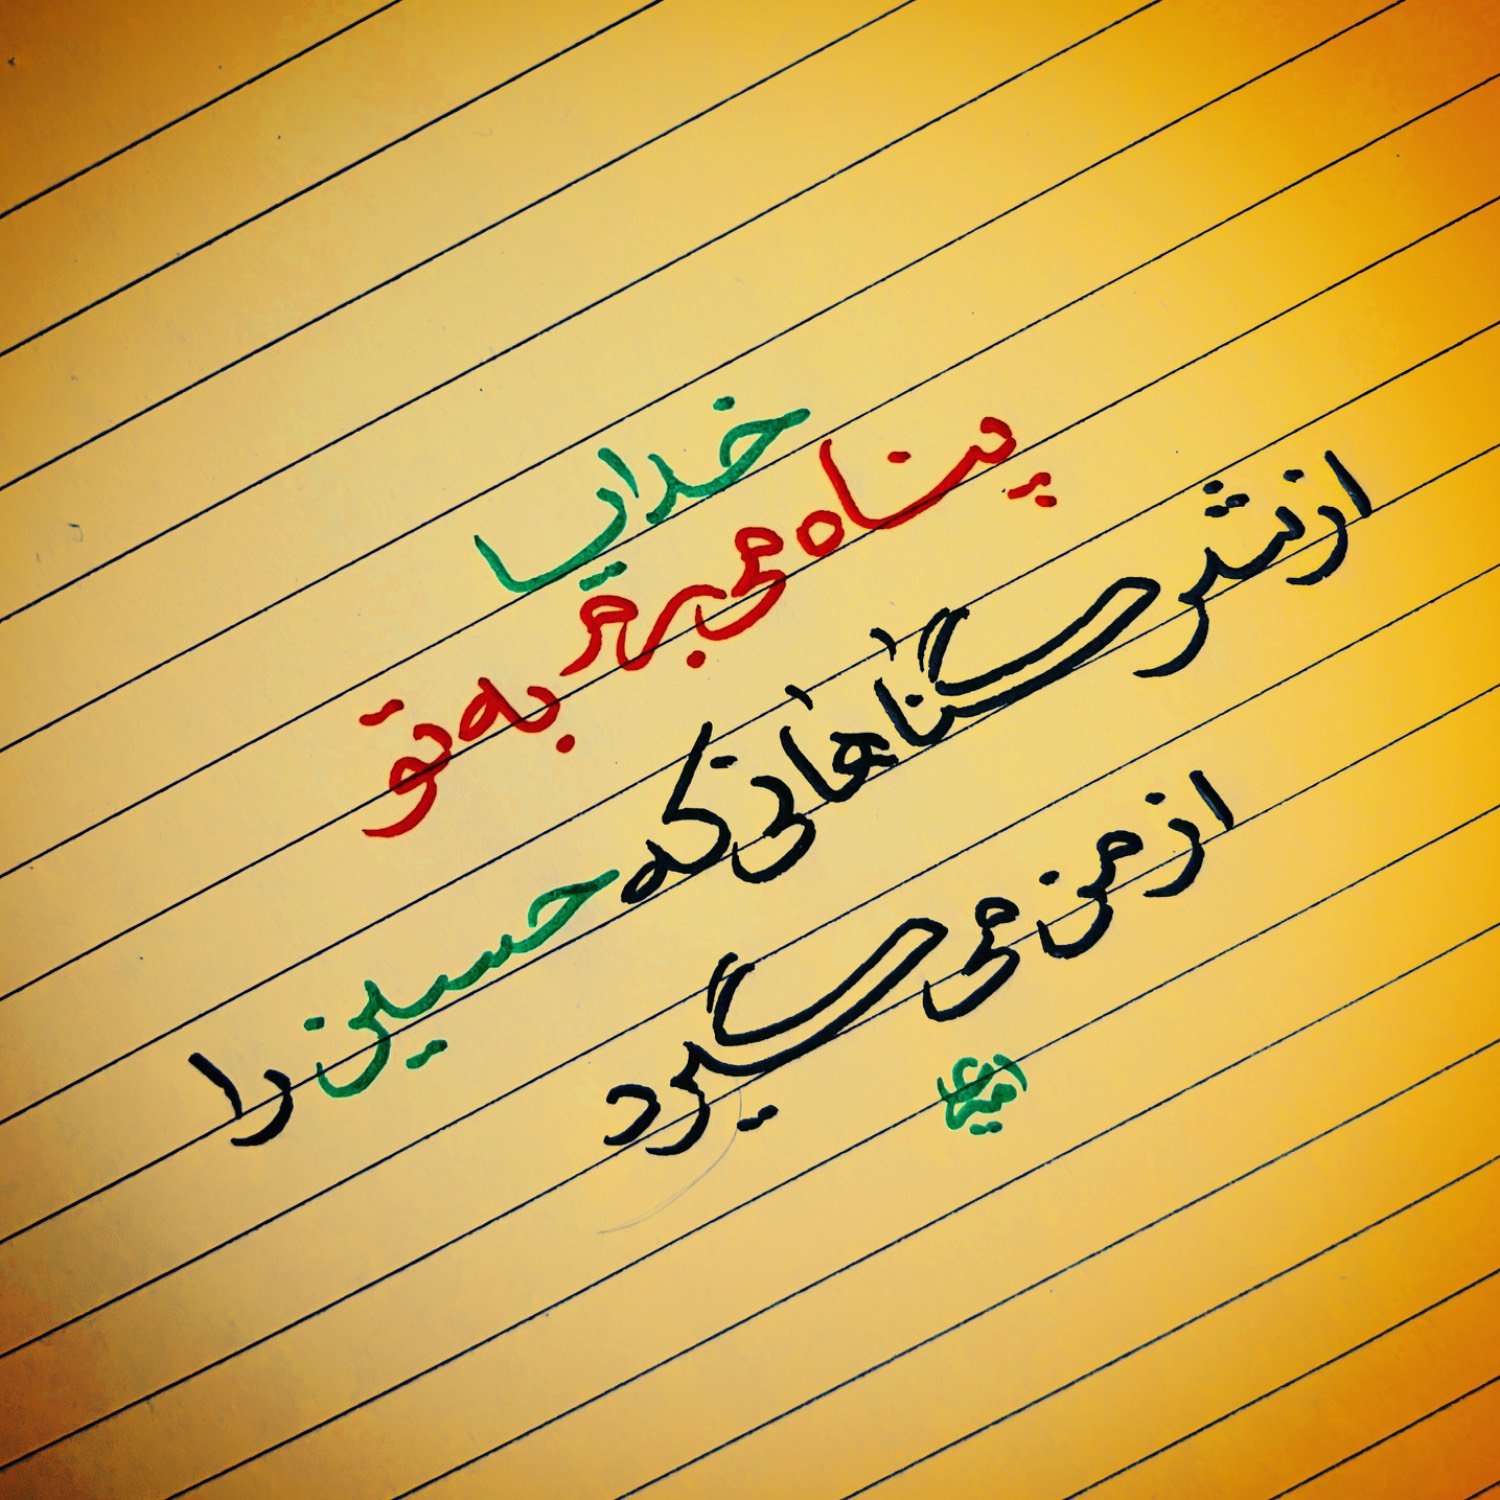 خدایا
پناه می‌برم به تو
از شر گناهانی که حسین را
از من می‌گیرد